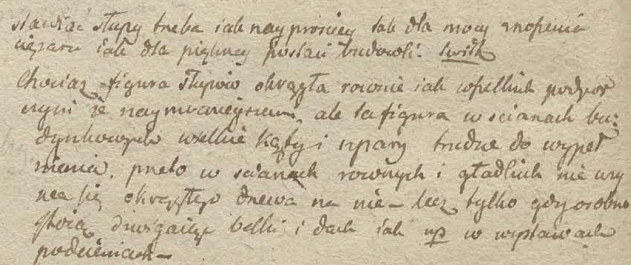 stawiać słupy trzeba iak nayprościey tak dla mocy znoszenia
ciężaru iak dla piękney postaci budowli.
Chociaż figura słupów okrągła rownie iak wszelkich podpor
czyni ie naymocnieyszemi, ale ta figura w scianach bu:
dynkowych wielkie kąty i szpary trudne do wypeł
nienia, przeto w scianach rownych i gładkich nie uży
wa się okrągłego drzewa na nie – lecz tylko gdy osobno
stoią dzwigaiąc belki i dach iak np w wystawach
podcieniach –